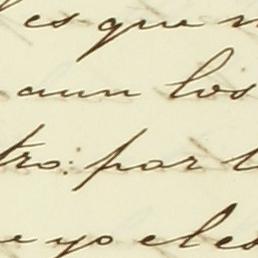 es que
aun los
tro: por
yo eles